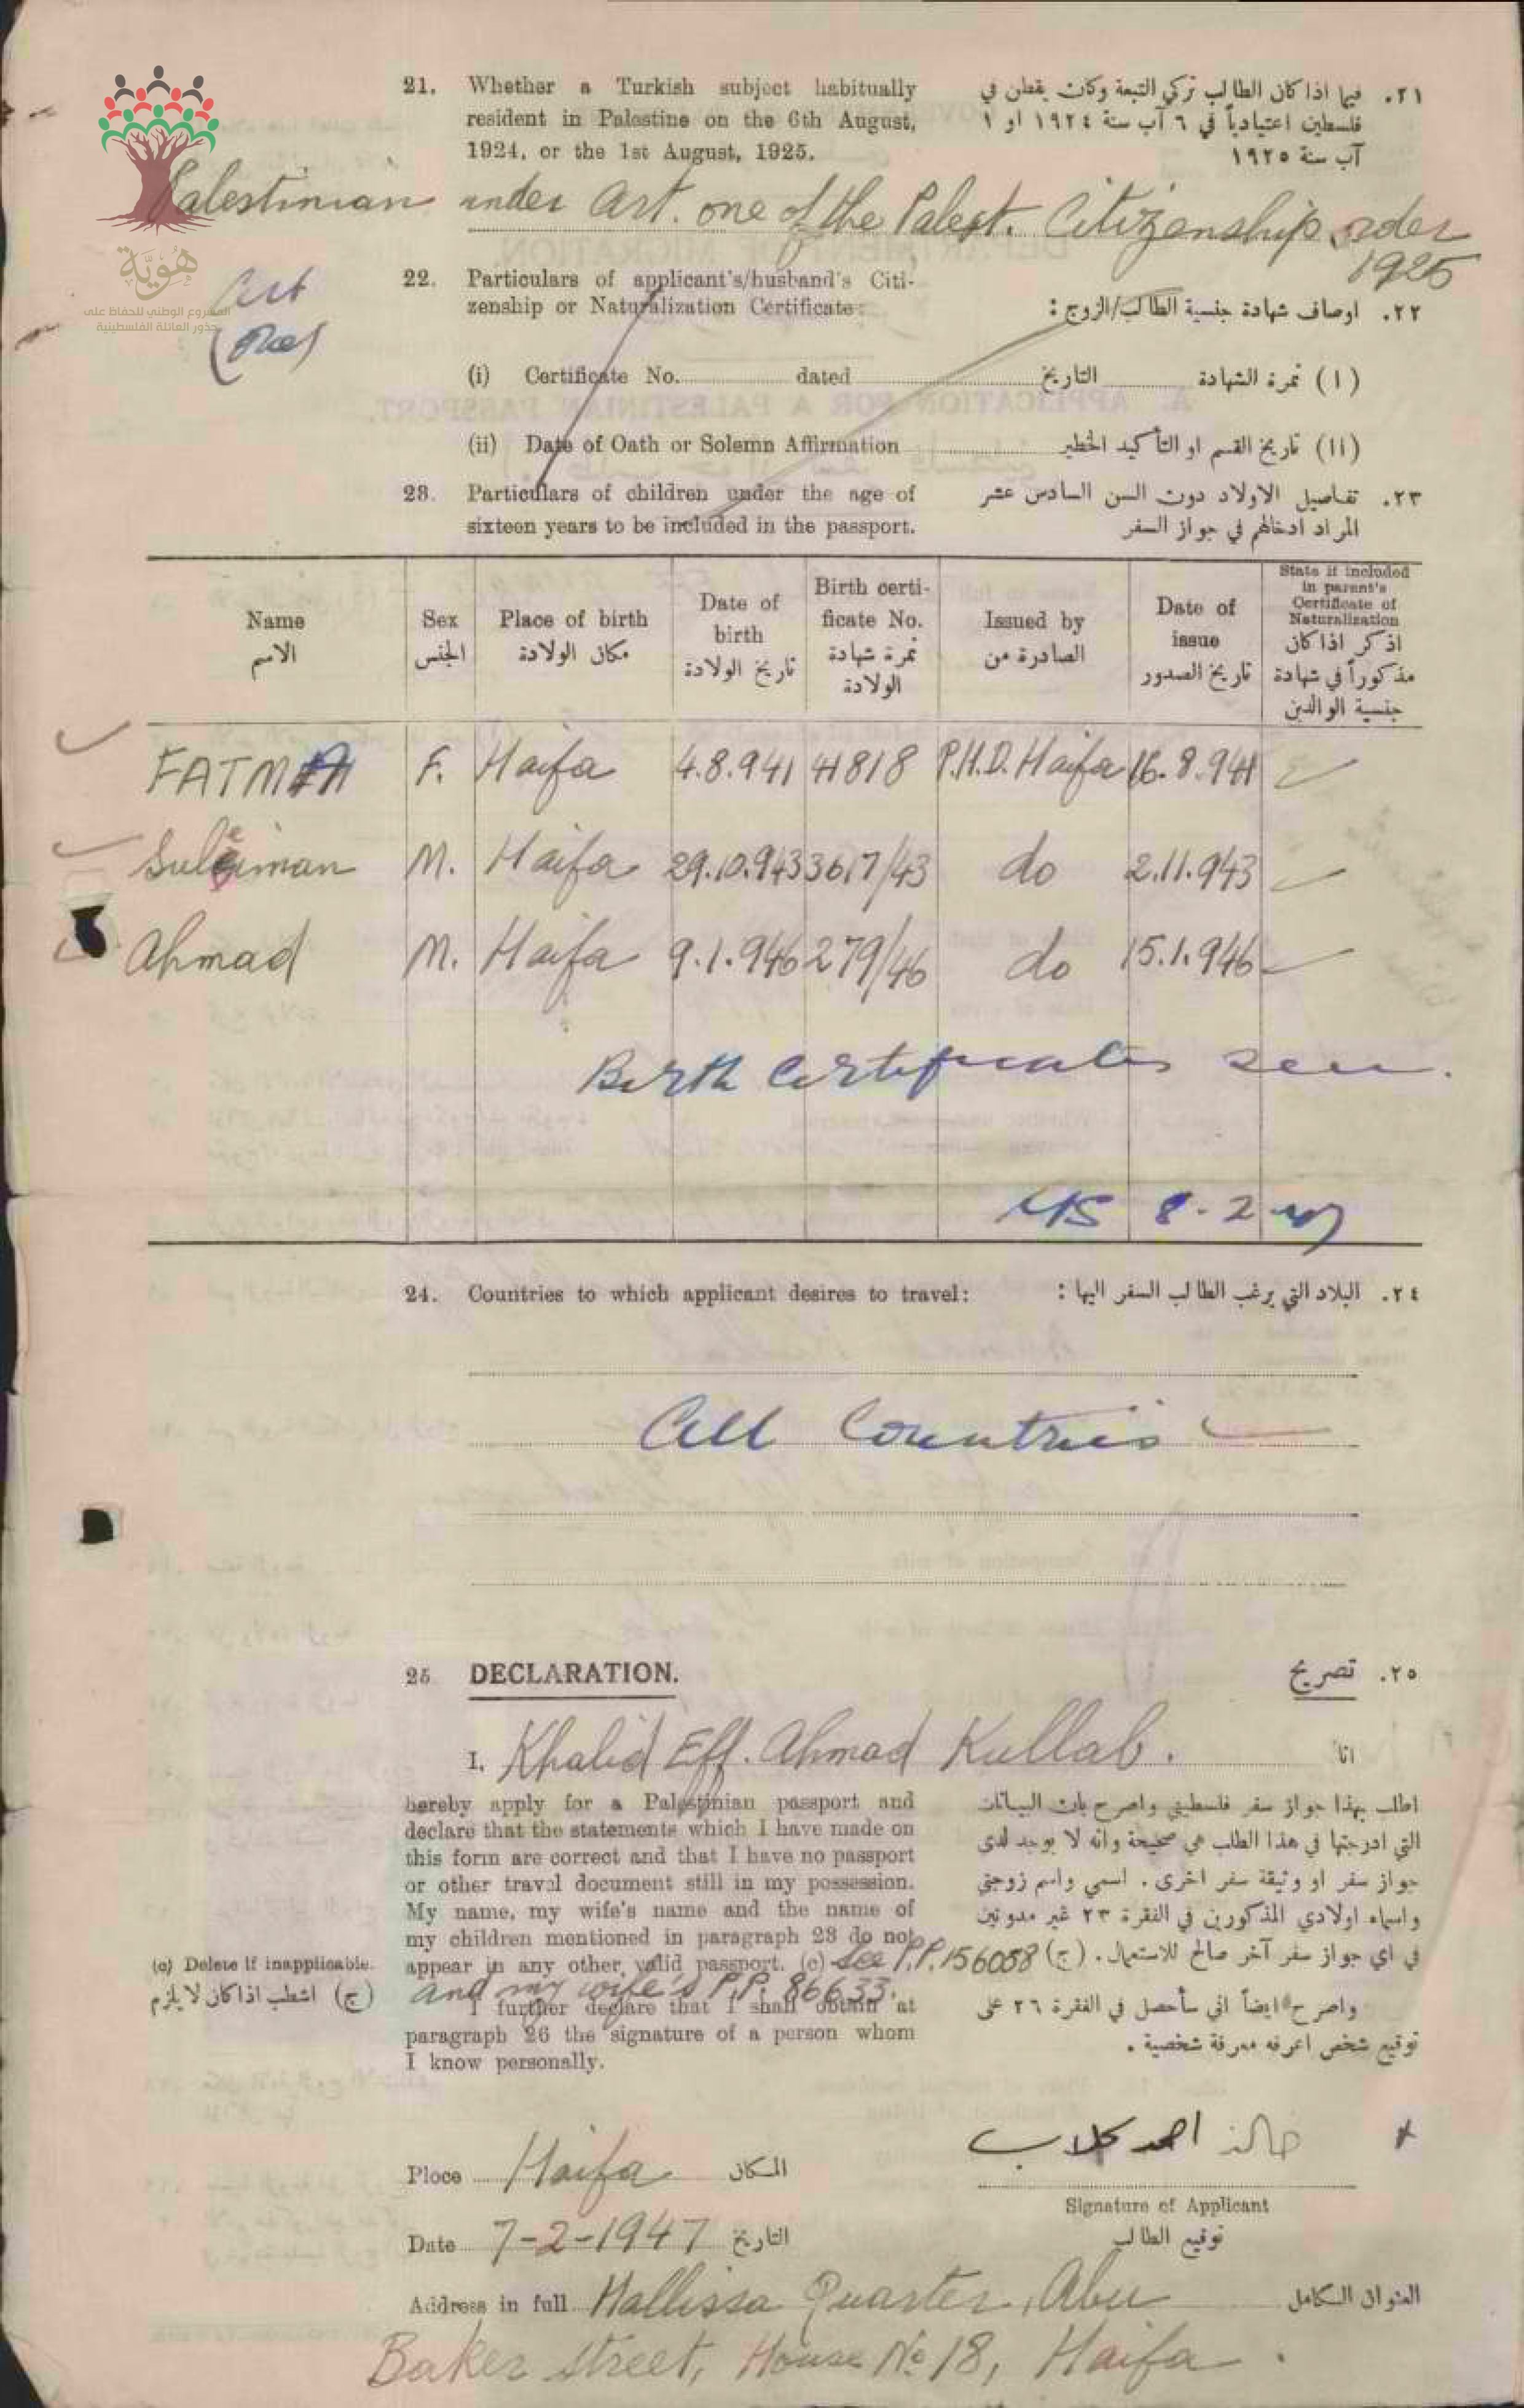 21. Whether a Turkish subject habitually
resident in Palestine on the 6th August,
1924, or the 1st August, 1925.
٢١. فيما اذا كان الطالب تركي التبعة وكان يقطن في
فلسطين اعتيادياً في ٦ آب سنة ١٩٢٤ او ١
آب سنة ١٩٢٥
Palestinian under Art. one of the Palest. Citizenship order
1925
هوية
المشروع الوطني للحفاظ على
جذور العائلة الفلسطينية
Art
22. Particulars of applicant's/husband's Citi-
zenship or Naturalization Certificate:
٢٢. اوصاف شهادة جنسية الطالب/الزوج :
(i) Certificate No. dated التاريخ (١) نمرة الشهادة
(ii) Date of Oath or Solemn Affirmation (١١) تاريخ القسم او التأكيد الخطير
23. Particulars of children under the age of
sixteen years to be included in the passport.
٢٣. تفاصيل الاولاد دون السن السادس عشر
المراد ادخالهم في جواز السفر
Name الاسم
Sex الجنس
Place of birth مكان الولادة
Date of birth تاريخ الولادة
Birth certi-
ficate No.
نمرة شهادة
الولادة
Issued by الصادرة من
Date of issue تاريخ الصدور
State if included
in parent's
Certificate of
Naturalization
اذكر اذا كان
مذكوراً في شهادة
جنسية الوالدين
FATMA F. Haifa 4.8.941 41818 P.H.D. Haifa 16.8.941
Suleiman M. Haifa 29.10.943 3617/43 do 2.11.943
Ahmad M. Haifa 9.1.946 279/46 do 15.1.946
Birth Certificates seen.
8-2-47
24. Countries to which applicant desires to travel: ٢٤. البلاد التي يرغب الطالب السفر اليها :
All Countries
25 DECLARATION. ٢٥. تصريح
I. Khalid Eff. Ahmad Kullab. انا
hereby apply for a Palestinian passport and
declare that the statements which I have made on
this form are correct and that I have no passport
or other travel document still in my possession.
My name, my wife's name and the name of
my children mentioned in paragraph 23 do not
appear in any other valid passport. (c) See P.P. 156058
and my wife's P.P. 86633.
I further declare that I shall obtain at
paragraph 26 the signature of a person whom
I know personally.
اطلب بهذا جواز سفر فلسطيني واصرح بان البيانات
التي ادرجتها في هذا الطلب هي صحيحة وانه لا يوجد لدى
جواز سفر او وثيقة سفر اخرى . اسمي واسم زوجتي
واسماء اولادي المذكورين في الفقرة ٢٣ غير مدونين
في اي جواز سفر آخر صالح للاستعمال. (ج)
واصرح ايضاً اني سأحصل في الفقرة ٢٦ على
توقيع شخص اعرفه معرفة شخصية .
(c) Delete if inapplicable.
(ج) اشطب اذا كان لا يلزم
خالد احمد كلاب
Place Haifa المكان
Signature of Applicant
توقيع الطالب
Date 7-2-1947 التاريخ
Address in full Hallissa Quarter, Abu العنوان الكامل
Baker street, House No 18, Haifa.